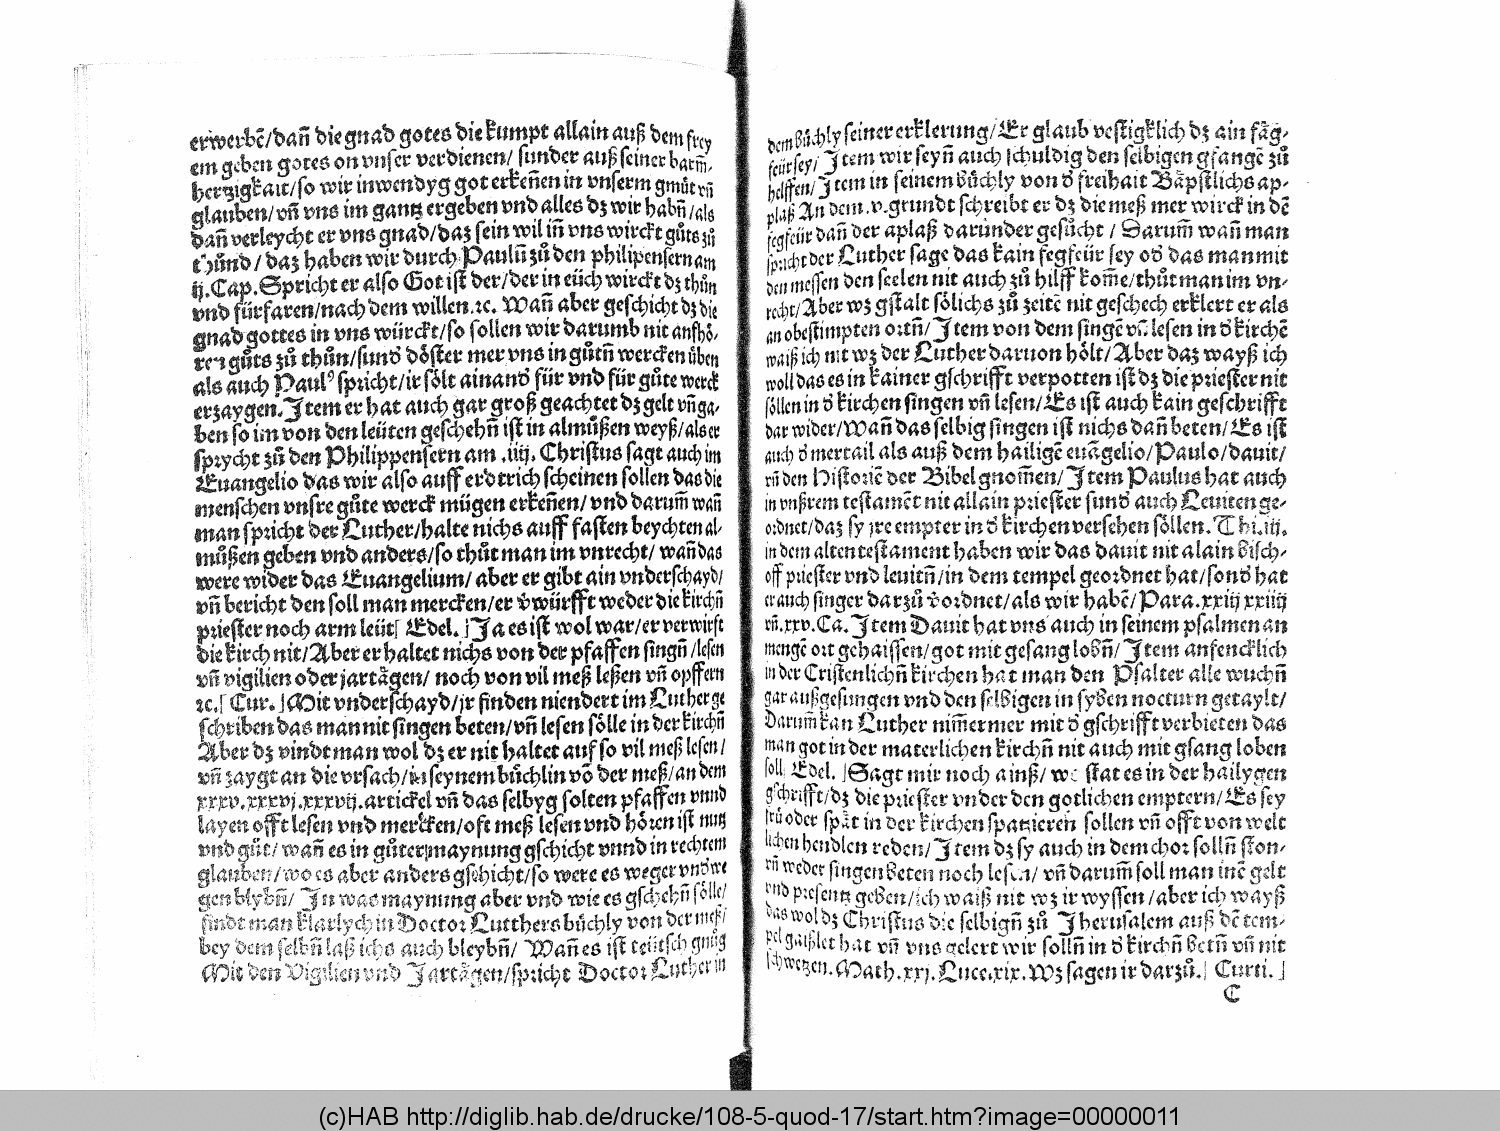 erwerbē/dañ die gnad gotes die kumpt allain auß dem frey
em geben gotes on vnser verdienen/ sunder auß seiner barm̄-
hertzigkait/so wir inwendyg got erkeñen in vnserm gmůt vñ
glauben/vñ vns im gantz ergeben vnd alles dz wir habñ/als
dañ verleycht er vns gnad/daz sein wil iñ vns wirckt gůts zů
thůnd/daz haben wir durch Paulũ zů den philipensern am
ij.Cap.Spricht er also Got ist der/der in eüch wirckt dz thůn
vnd fürfaren/nach dem willen.ꝛc. Wañ aber geschicht dz die
gnad gottes in vns würckt/so sollen wir darumb nit aufhö-
ren gůts zů thůn/sund' döster mer vns in gůtñ wercken üben
als auch Paulꝰ spricht/ir sölt ainand' für vnd für gůte werck
erzaygen.Item er hat auch gar groß geachtet dz gelt vñ ga-
ben so im von den leüten geschehñ ist in almůßen weyß/als er
sprycht zů den Philippensern am .iiij. Christus sagt auch im
Euangelio das wir also auff erdtrich scheinen sollen das die
menschen vnsre gůte werck mügen erkeñen/vnd darum̄ wañ
man spricht der Luther/halte nichs auff fasten beychten al-
můßen geben vnd anders/so thůt man im vnrecht/ wañ das
were wider das Euangelium/ aber er gibt ain vnderschayd/
vñ bericht den soll man mercken/er v̓würfft weder die kirchñ
priester noch arm leüt[ Edel. ]Ja es ist wol war/er verwirft
die kirch nit/Aber er haltet nichs von der pfaffen singñ/lesen
vñ vigilien oder jartägen/ noch von vil meß leßen vñ opffern
ꝛc.[ Cur. ]Mit vnderschayd/jr finden niendert im Luther ge
schriben das man nit singen beten/vñ lesen sölle in der kirchñ
Aber dz vindt man wol dz er nit haltet auf so vil meß lesen/
vñ zaygt an die vrsach/in seynem bůchlin vō der meß/an dem
xxxv.xxxvj.xxxvij.artickel vñ das selbyg solten pfaffen vnnd
layen offt lesen vnd mercken/oft meß lesen vnd hören ist nutz
vnd gůt/ wañ es in gůter maynung gschicht vnnd in rechtem
glauben/wo es aber anders gschicht/so were es weger vnd' we
gen blybñ/ In was maynung aber vnd wie es gschehñ sölle/
findt man klarlych in Doctor Lutthers bůchly von der meß/
bey dem selbñ laß ichs auch bleybñ/ Wañ es ist teütsch gnůg
Mit den Vigilien vnd Jartägen/spricht Doctor Luther in
dem bůchly seiner erklerung/Er glaub vestigklich dz ain fäg-
feür sey/ Item wir seyñ auch schuldig den selbigen gfangē zů
helffen/Item in seinem bůchly von d' freihait Bäpstlichs ap-
plaß An dem .v.grundt schreibt er dz die meß mer wirck in dē
fegfeür dañ der aplaß darunder gesücht / Darum̄ wañ man
spricht der Luther sage das kain fegfeür sey od' das man mit
den messen den seelen nit auch zů hilff kom̄e/thůt man im vn-
recht/Aber wz gstalt sölichs zů zeitē nit geschech erklert er als
an obestimpten ortñ/Item von dem singē vñ lesen in d' kirchē
waiß ich nit wz der Luther daruon hölt/Aber daz wayß ich
woll das es in kainer gschrifft verpotten ist dz die priester nit
söllen in d' kirchen singen vñ lesen/Es ist auch kain geschrifft
dar wider/Wañ das selbig singen ist nichs dañ beten/Es ist
auch d' mertail als auß dem hailigē euāgelio/Paulo/dauit/
vñ den Historiē der Bibel gnom̄en/Item Paulus hat auch
in vnßrem testamēt nit allain priester sund' auch Leuiten ge-
ordnet/daz sy jre empter in d' kirchen versehen söllen. Thi.iij.
in dem alten testament haben wir das dauit nit alain Bisch-
off priester vnd leuitñ/in dem tempel geordnet hat/sond' hat
er auch singer darzů v̓ordnet/als wir habē/Para.xxiij xxiiij
vñ.xxv.Ca.Item Dauit hat vns auch in seinem psalmen an
mengē ort gehaissen/got mit gesang lobñ/Item anfencklich
in der Cristenlichñ kirchen hat man den Psalter alle wuchñ
gar außgesungen vnd den selbigen in syben nocturn getaylt/
Darum̄ kan Luther nim̄ermer mit d' gschrifft verbieten das
man got in der materlichen kirchñ nit auch mit gsang loben
soll[ Edel. ]Sagt mir noch ainß/ wo stat es in der hailygen
gschrifft/dz die priester vnder den gotlichen emptern/Es sey
frů oder spät in der kirchen spatzieren sollen vñ offt von welt
lichen hendlen reden/Item dz sy auch in dem chor sollñ ston-
vñ weder singen beten noch lesen/ vñ darum̄ soll man inē gelt
vnd presentz geben/ich waiß nit wz ir wyssen/aber ich wayß
das wol dz Christus die selbigñ zů Jherusalem auß dē tem-
pel gaißlet hat vñ vns gelert wir sollñ in d' kirchñ betñ vñ nit
schwetzen.Math.xxj.Luce.xix.Wz sagen ir darzů.[ Curti. ]
C
(c)HAB http://diglib.hab.de/drucke/108-5-quod-17/start.htm?image=00000011